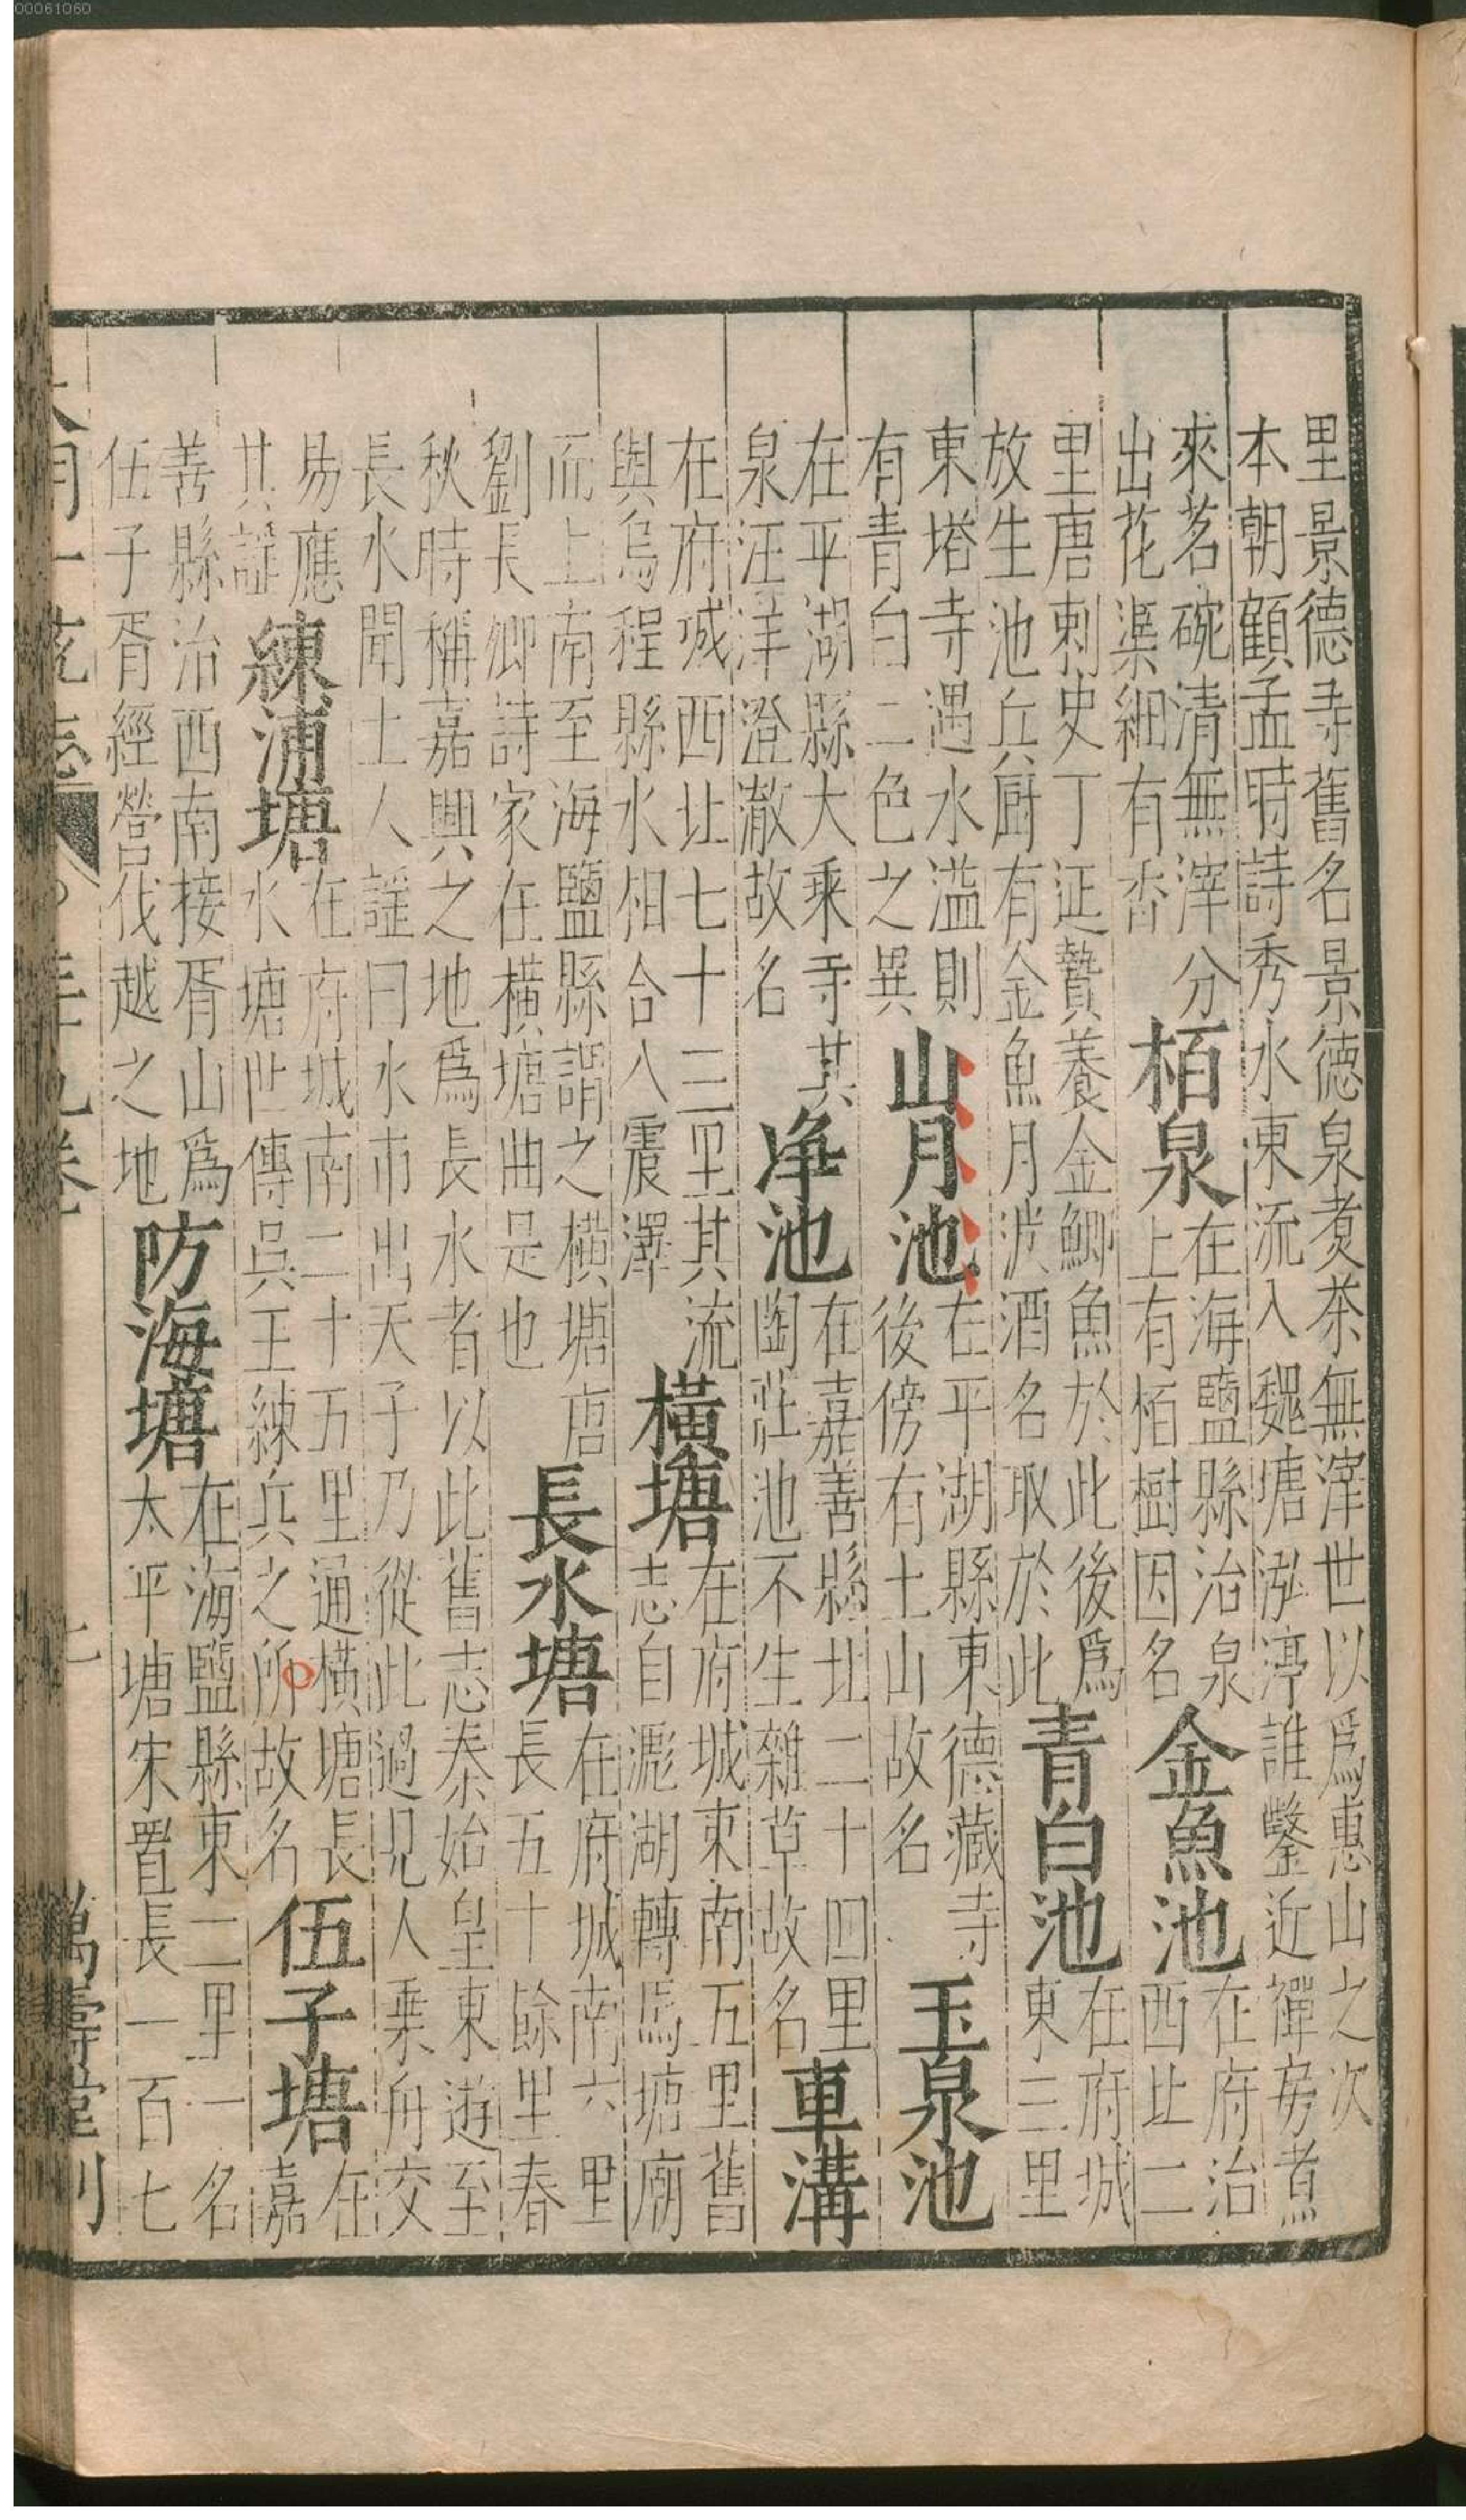 里景德寺舊名景德泉煑茶無滓世以爲惠山之次
本朝顧孟時詩秀水東流入魏塘泓渟誰鑿近禪房煮
來茗碗清無滓分
出花渠細有香
栢泉
在海鹽縣治泉
上有栢樹因名
金魚池
在府治
西北二
里唐刺史丁延贊養金鯽魚於此後爲
放生池兵厨有金魚月波酒名取於此
青白池
在府城
東三里
東塔寺遇水溢則
有青白二色之異
山月池
在平湖縣東德藏寺
後傍有土山故名
玉泉池
在平湖縣大乘寺其
泉汪洋澄澈故名
净池
在嘉善縣北二十四里
陶莊池不生雜草故名
車溝
在府城西北七十三里其流
與烏程縣水相合入震澤
橫塘
在府城東南五里舊
志自漉湖轉馬塘廟
而上南至海鹽縣謂之橫塘唐
劉長卿詩家在橫塘曲是也
長水塘
在府城南六里
長五十餘里春
秋時稱嘉興之地爲長水者以此舊志秦始皇東遊至
長水聞土人謡曰水市出天子乃從此過見人乗舟交
易應
其謡
練浦塘
在府城南二十五里通橫塘長
水塘世傳吳王練兵之所故名
伍子塘
在
嘉
善縣治西南接胥山爲
伍子胥經營伐越之地
防海塘
在海鹽縣東二里一名
太平塘宋置長一百七
萬壽堂刊
00061060